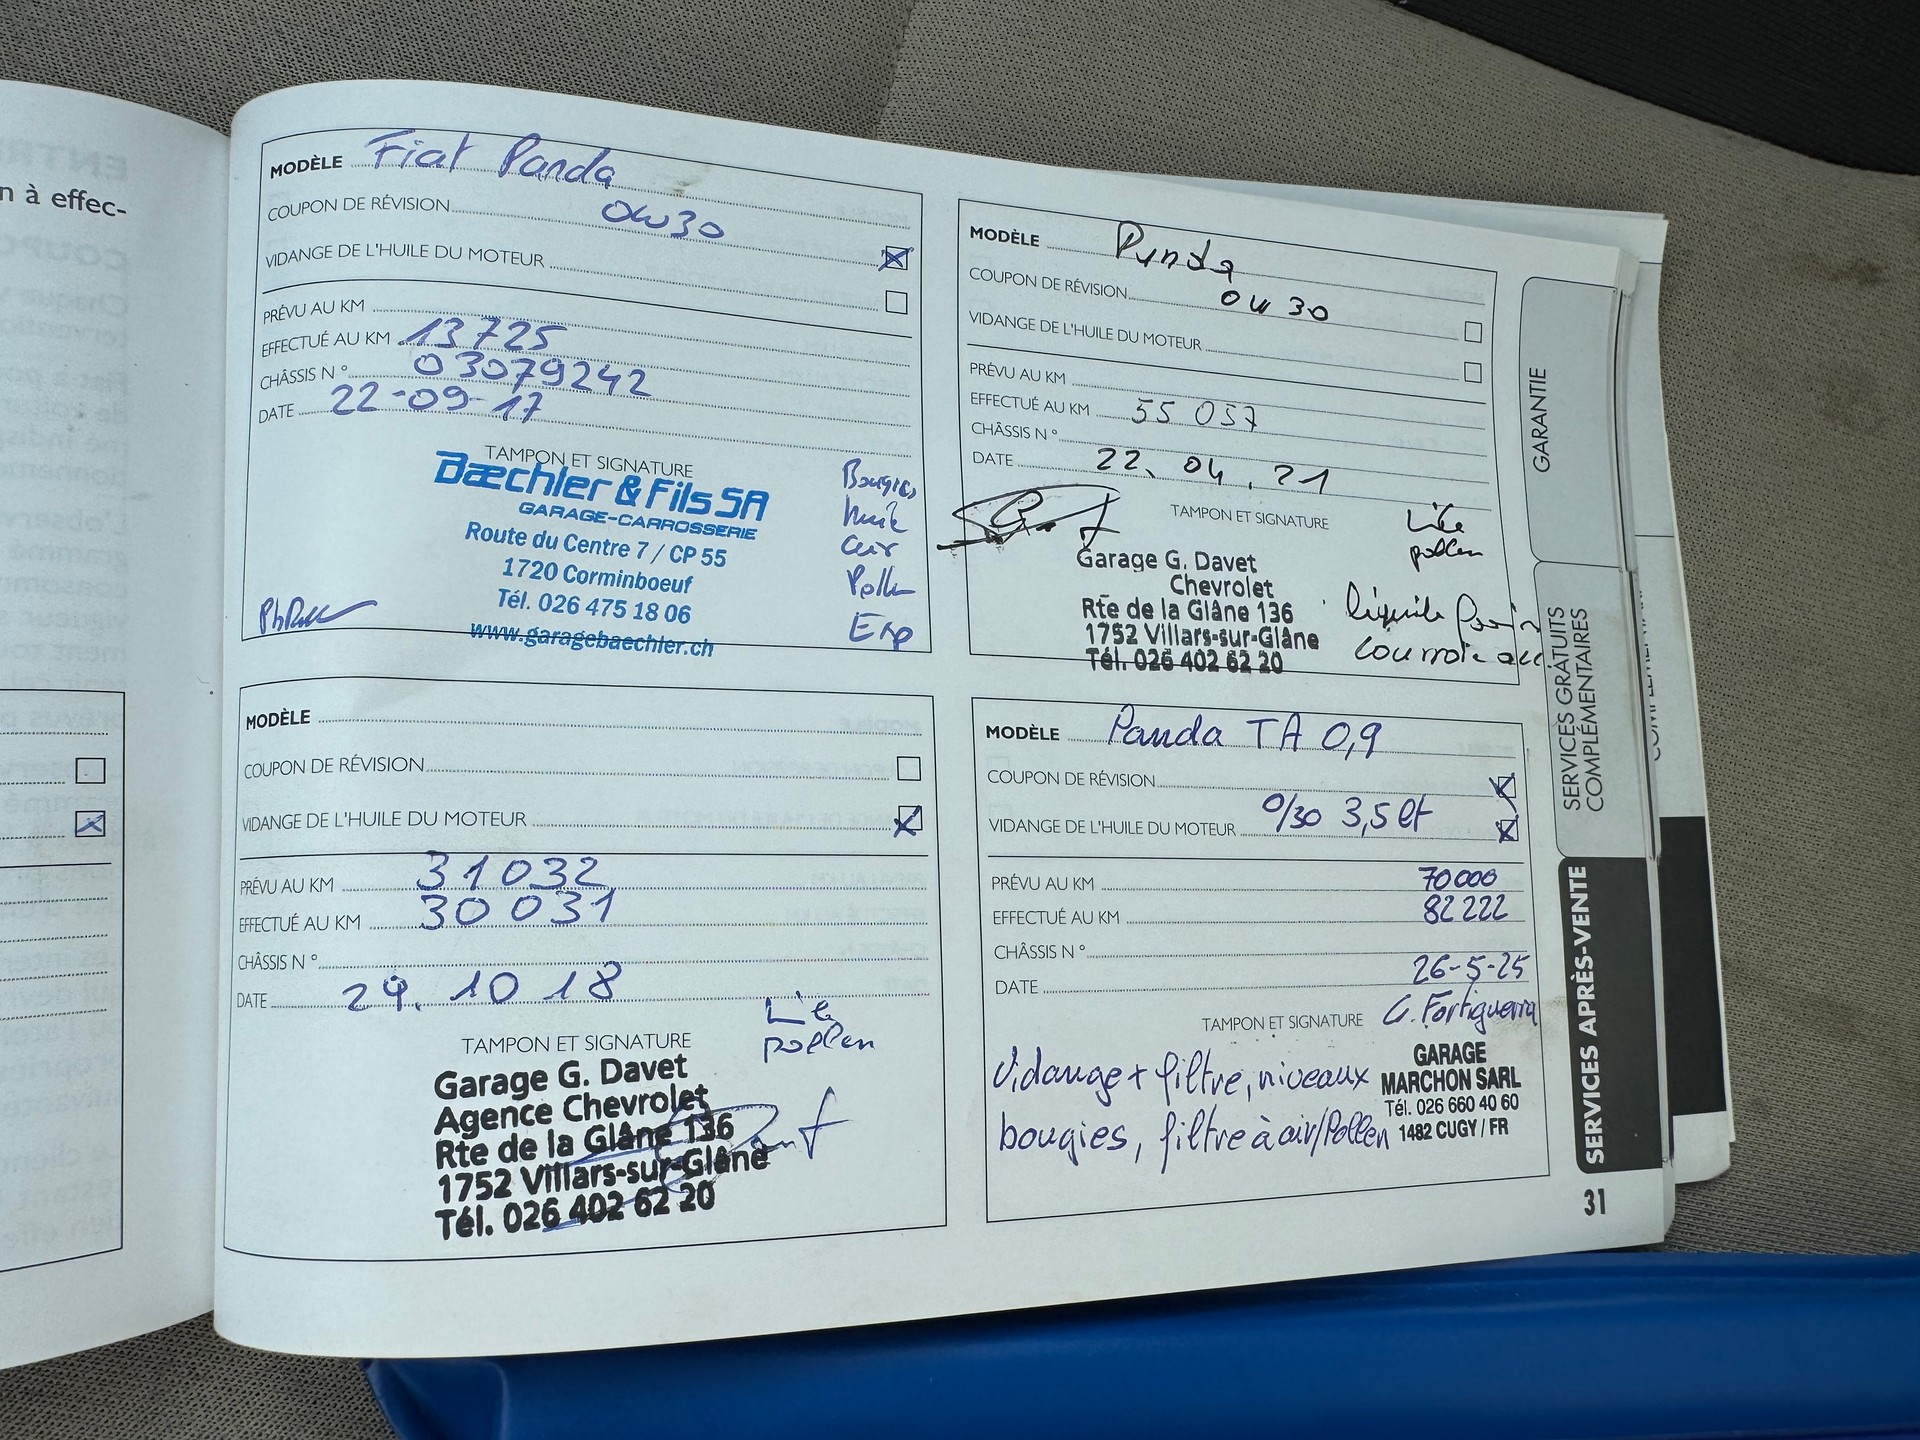 n à effec-
MODÈLE Fiat Panda
COUPON DE RÉVISION 0W30
VIDANGE DE L'HUILE DU MOTEUR
PRÉVU AU KM
EFFECTUÉ AU KM 13725
CHÂSSIS N° 03079242
DATE 22-09-17
TAMPON ET SIGNATURE
Bæchler & Fils SA
GARAGE-CARROSSERIE
Route du Centre 7 / CP 55
1720 Corminboeuf
Tél. 026 475 18 06
www.garagebaechler.ch
Bougies
huile
air
Pollen
Exp
MODÈLE Panda
COUPON DE RÉVISION 0W30
VIDANGE DE L'HUILE DU MOTEUR
PRÉVU AU KM
EFFECTUÉ AU KM 55 057
CHÂSSIS N°
DATE 22.04.21
TAMPON ET SIGNATURE
pollen
Garage G. Davet
Chevrolet
Rte de la Glâne 136
1752 Villars-sur-Glâne
Tél. 026 402 62 20
liquide
courroie
MODÈLE
COUPON DE RÉVISION
VIDANGE DE L'HUILE DU MOTEUR
PRÉVU AU KM 31032
EFFECTUÉ AU KM 30031
CHÂSSIS N°
DATE 29.10 18
TAMPON ET SIGNATURE
pollen
Garage G. Davet
Agence Chevrolet
Rte de la Glâne 136
1752 Villars-sur-Glâne
Tél. 026 402 62 20
MODÈLE Panda TA 0,9
COUPON DE RÉVISION
VIDANGE DE L'HUILE DU MOTEUR 0/30 3,5 lt
PRÉVU AU KM 70000
EFFECTUÉ AU KM 82222
CHÂSSIS N°
DATE 26-5-25
TAMPON ET SIGNATURE G. Fortiguerra
Vidange + filtre, niveaux
bougies, filtre à air/Pollen
GARAGE
MARCHON SARL
Tél. 026 660 40 60
1482 CUGY / FR
GARANTIE
SERVICES GRATUITS
COMPLÉMENTAIRES
SERVICES APRÈS-VENTE
31